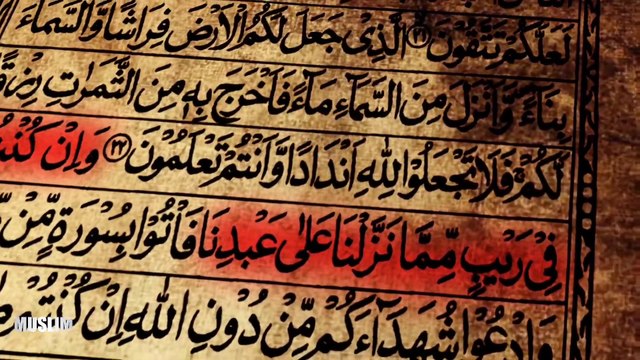 لَعَلَّكُمْ تَتَّقُوْنَ ۝٢١ الَّذِيْ جَعَلَ لَكُمُ الْاَرْضَ فِرَاشًا وَّالسَّمَآءَ
بِنَآءً وَّاَنْزَلَ مِنَ السَّمَآءِ مَآءً فَاَخْرَجَ بِهٖ مِنَ الثَّمَرٰتِ رِزْقًا
لَّكُمْ فَلَا تَجْعَلُوْا لِلّٰهِ اَنْدَادًا وَّاَنْتُمْ تَعْلَمُوْنَ ۝٢٢ وَاِنْ كُنْتُ
فِيْ رَيْبٍ مِّمَّا نَزَّلْنَا عَلٰى عَبْدِنَا فَاْتُوْا بِسُوْرَةٍ مِّنْ
وَادْعُوْا شُهَدَآءَكُمْ مِّنْ دُوْنِ اللّٰهِ اِنْ كُنْتُمْ
MUSLIM